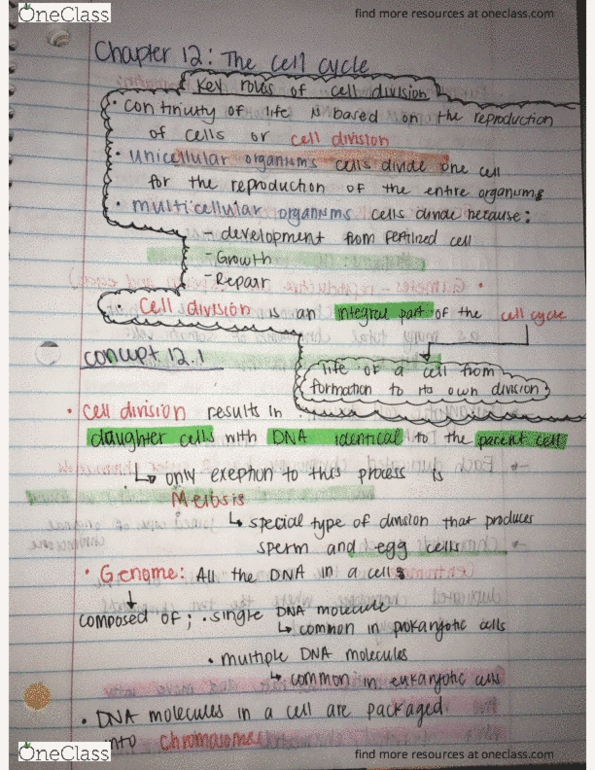 OneClass
find more resources at oneclass.com
Chapter 12: The Cell Cycle
Key roles of cell division
• continuity of life is based on the reproduction
of cells or cell division
• unicellular organisms cells divide one cell
for the reproduction of the entire organisms
• multicellular organisms cells divide because:
- development from fertilized cell
- Growth
- Repair
• Cell division is an integral part of the cell cycle
life of a cell from
formation to its own division
concept 12.1
• cell division results in
daughter cells with DNA identical to the parent cell
↳ only exeption to this process is
Meiosis
↳ special type of division that produces
sperm and egg cells
• Genome: All the DNA in a cells
composed of; • single DNA molecule
↳ common in prokaryotic cells
• multiple DNA molecules
↳ common in eukaryotic cells
• DNA molecules in a cell are packaged
into chromosomes
OneClass
find more resources at oneclass.com